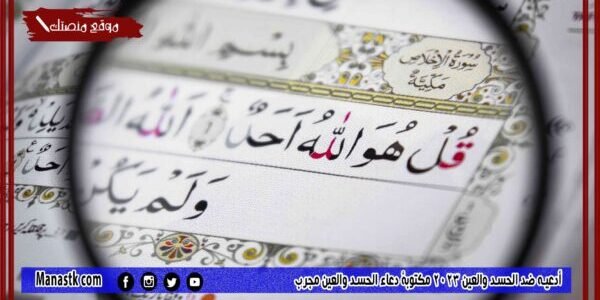 موقع منصتك
بِسْمِ اللهِ
سُورَةُ الْإِخْلَاصِ
مَكِّيَّة
قُلْ هُوَ اللّٰهُ أَحَدٌ اَللّٰهُ
وَلَمْ يَكُ
أدعيه ضد الحسد والعين ٢٠٢٣ مكتوبة دعاء الحسد والعين مجرب
Manastk com